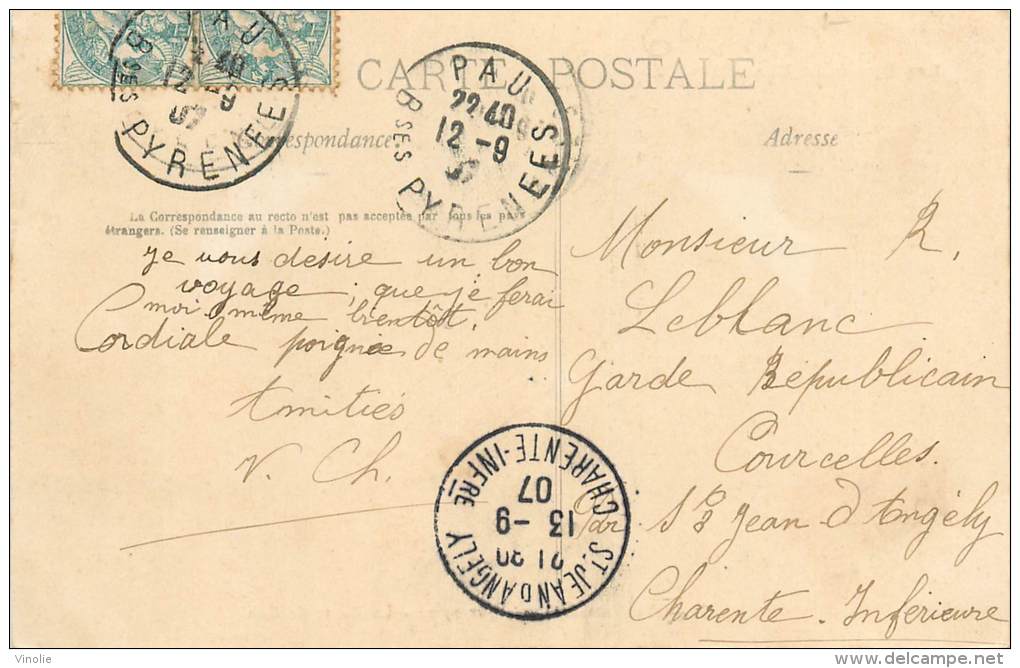 CARTE POSTALE
Correspondance
Adresse
PAU
Bses PYRENEES
22 40
12 -9
PAU
22 40
12 -9
Bses PYRENEES
La Correspondance au recto n'est pas acceptée par tous les pays
étrangers. (Se renseigner à la Poste.)
Je vous désire un bon
voyage, que je ferai
moi-même bientôt.
Cordiale poignée de mains
Amitiés
V. Ch.
Monsieur R.
Leblanc
Garde Républicain
Courcelles.
Par St Jean d'Angély
Charente-Inférieure
ST JEAN D'ANGELY
21 30
13 -9
07
CHARENTE-INFRE
Vinolie
delcampe.net